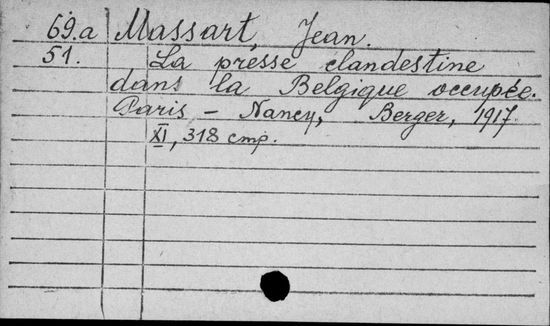 69.a Massart, Jean.
51. La presse clandestine
dans la Belgique occupée.
Paris – Nancy, Berger, 1917.
XI, 318 стр.